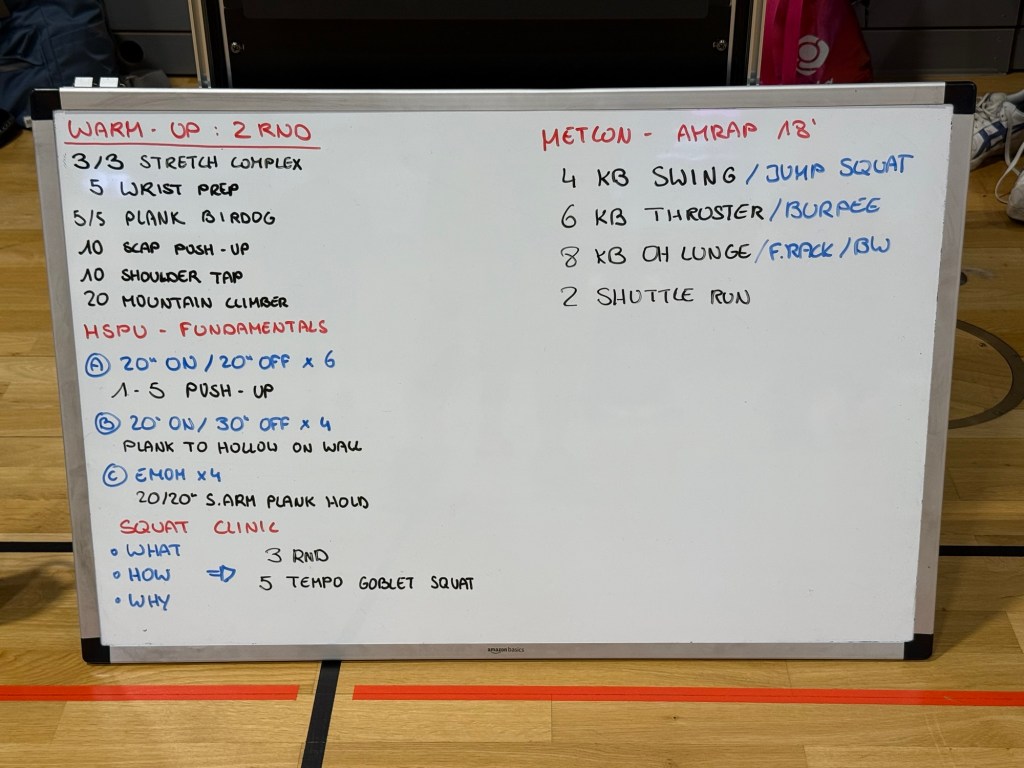 WARM-UP: 2 RND
3/3 STRETCH COMPLEX
5 WRIST PREP
5/5 PLANK BIRDOG
10 SCAP PUSH-UP
10 SHOULDER TAP
20 MOUNTAIN CLIMBER
HSPU - FUNDAMENTALS
A 20" ON / 20" OFF x 6
1-5 PUSH-UP
B 20" ON / 30" OFF x 4
PLANK TO HOLLOW ON WALL
C EMOM x4
20/20" S.ARM PLANK HOLD
SQUAT CLINIC
• WHAT
• HOW ⇒
• WHY
3 RND
5 TEMPO GOBLET SQUAT
METCON - AMRAP 18'
4 KB SWING / JUMP SQUAT
6 KB THRUSTER / BURPEE
8 KB OH LUNGE / F.RACK / BW
2 SHUTTLE RUN
amazon basics